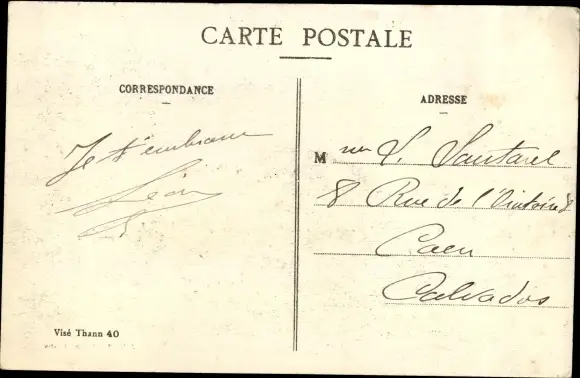 CARTE POSTALE
CORRESPONDANCE
Je t'embrasse
Léon
Visé Thann 40
ADRESSE
Mme L. Sautarel
8 Rue de l'Oratoire 8
Caen
Calvados